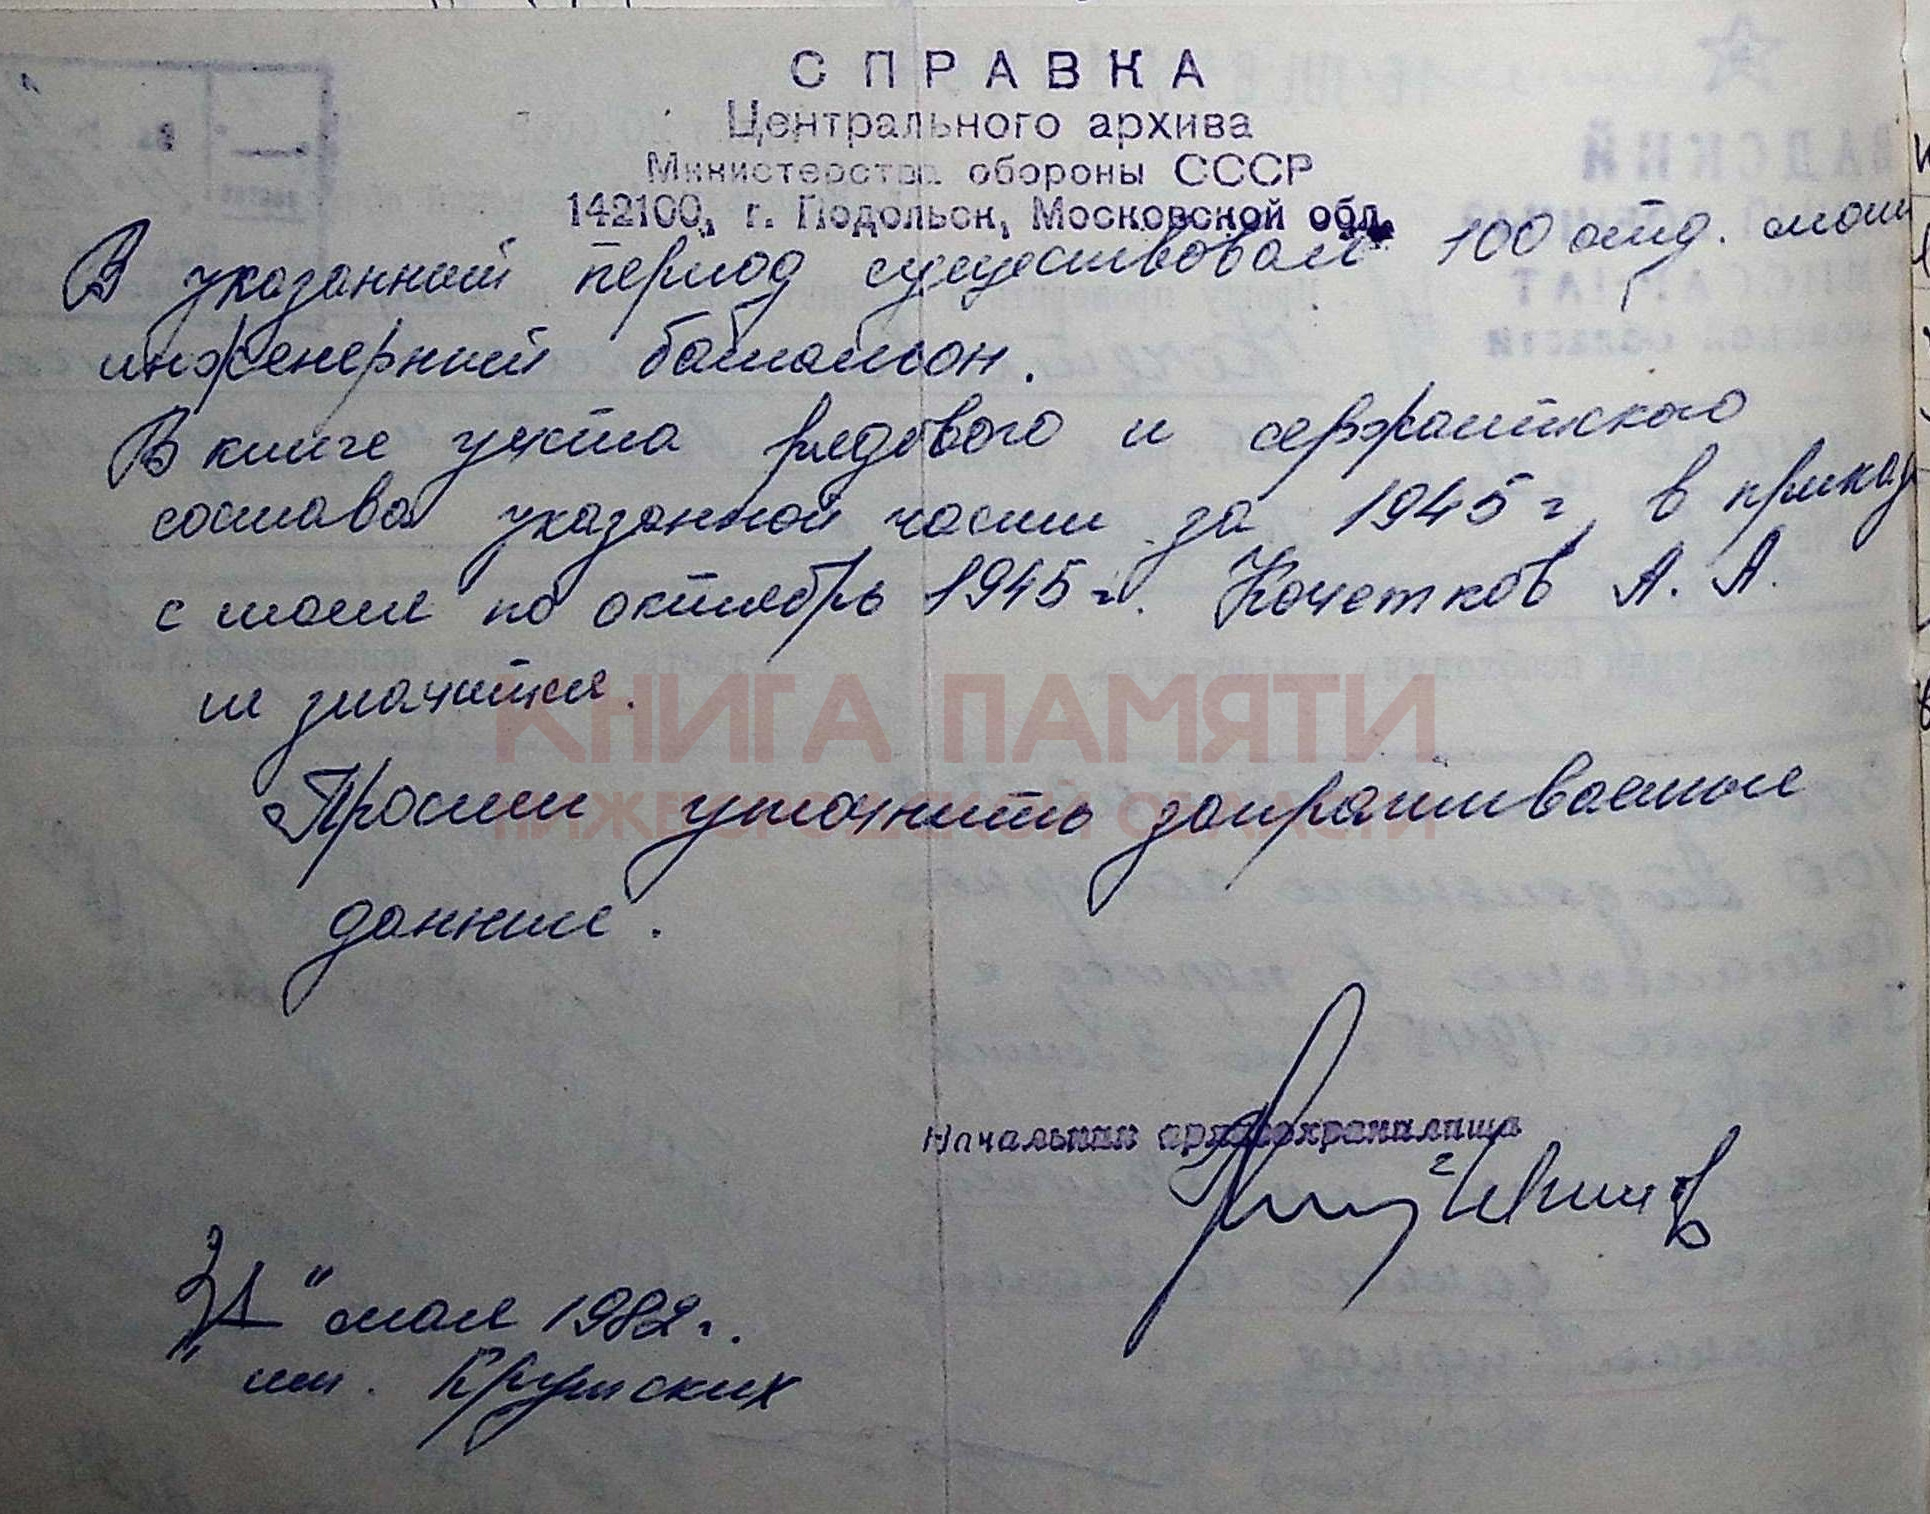 СПРАВКА
Центрального архива
Министерства обороны СССР
142100, г. Подольск, Московской обл.
В указанный период существовал 100 отд. мото
инженерный батальон.
В книге учета рядового и сержантского
состава указанной части за 1945 г, в приказ
с мая по октябрь 1945 г. Кочетков А. А.
не значится.
КНИГА ПАМЯТИ
НИЖЕГОРОДСКОЙ ОБЛАСТИ
Просим уточнить запрашиваемые
данные.
Начальник архивохранилища
" мая 1982 г.
исп. Крутских